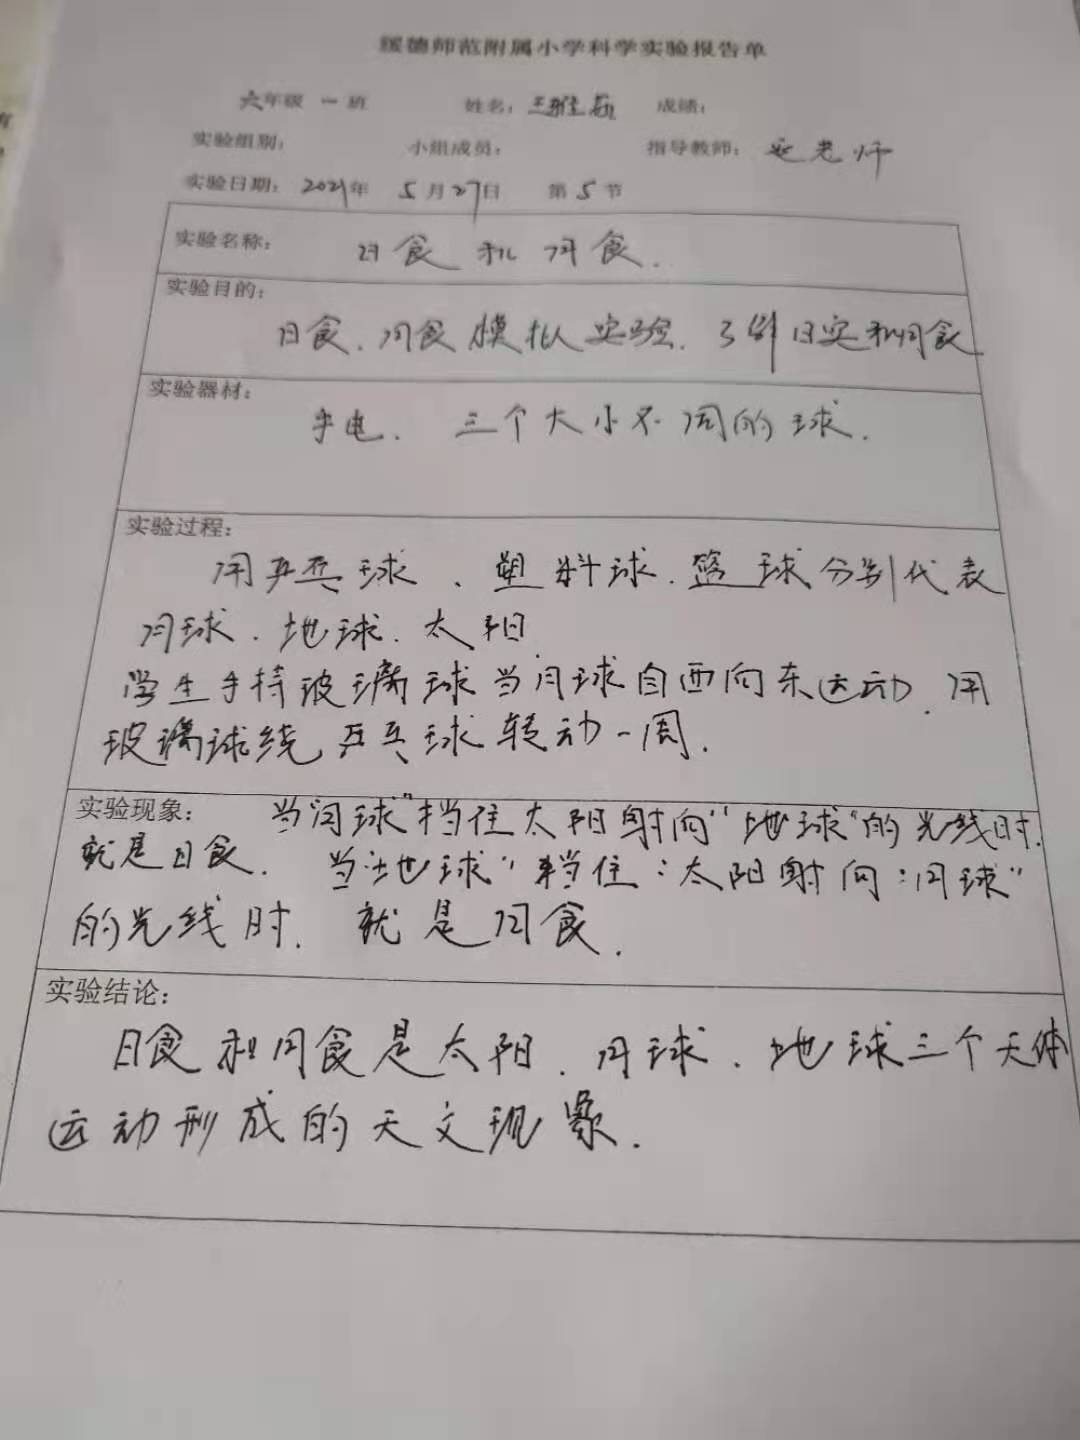 绥德师范附属小学科学实验报告单
六年级 一 班 姓名：王雅茹 成绩：
实验组别： 小组成员： 指导教师：延老师
实验日期：2021年 5月27日 第5节
实验名称： 日食和月食.
实验目的：
日食、月食模拟实验.了解日食和月食
实验器材：
手电. 三个大小不同的球.
实验过程：
用乒乓球、塑料球.篮球分别代表
月球.地球.太阳
学生手持玻璃球当月球自西向东运动.用
玻璃球绕乒乓球转动一周.
实验现象： 当"月球"挡住太阳射向"地球"的光线时.
就是日食. 当"地球"挡住"太阳射向"月球"
的光线时. 就是月食.
实验结论：
日食和月食是太阳.月球.地球三个天体
运动形成的天文现象.